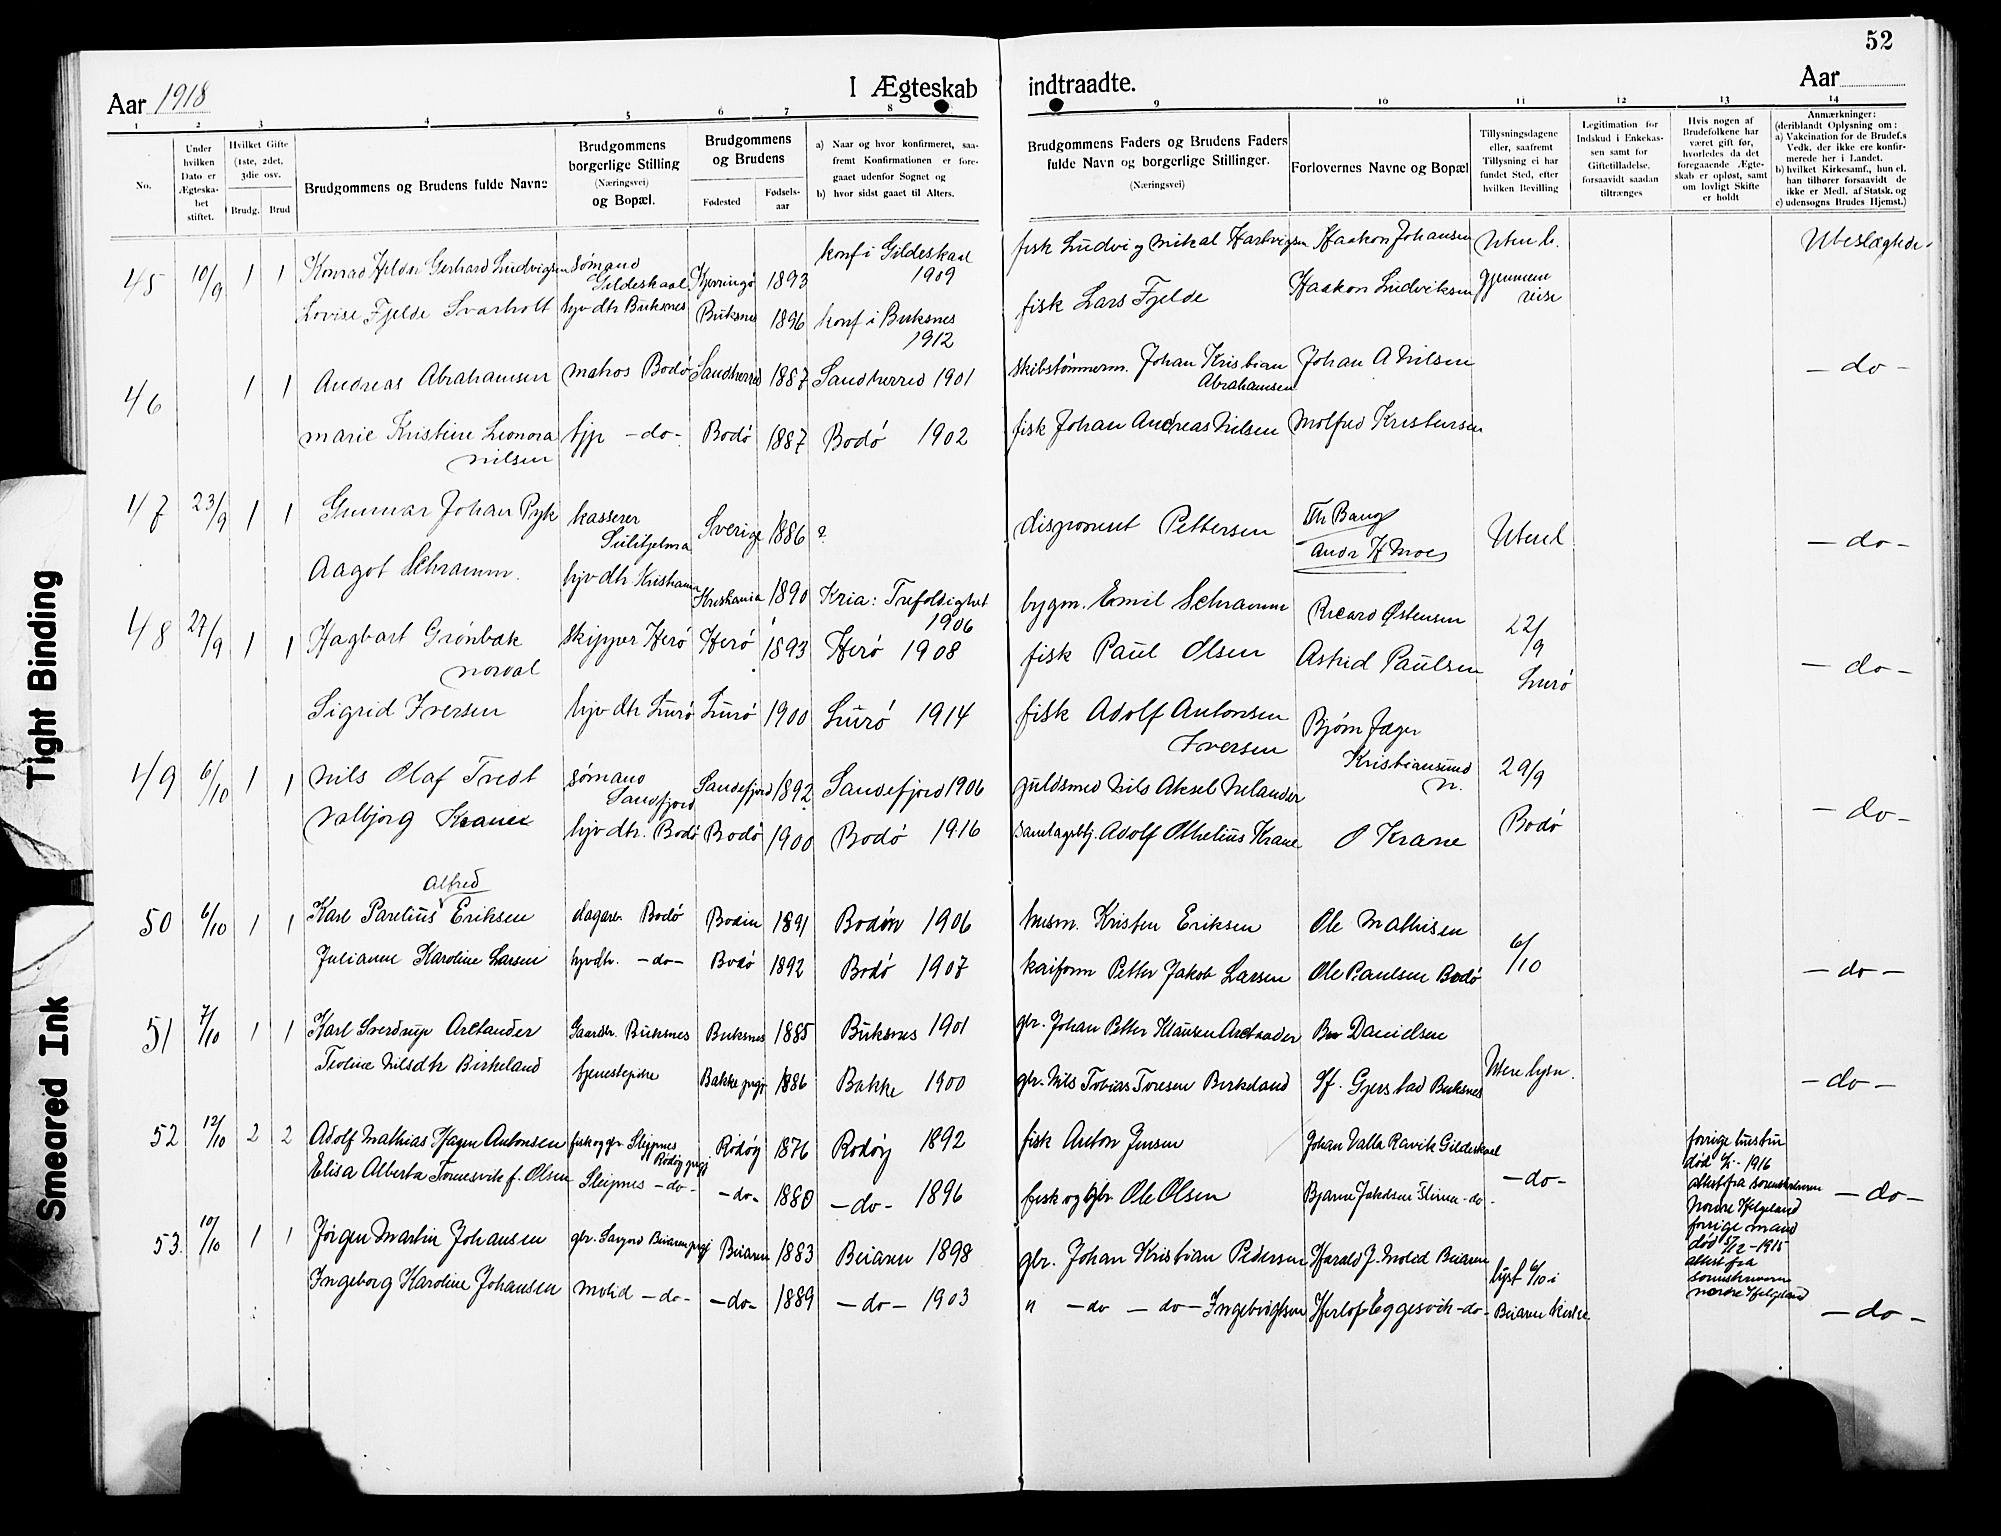 52
Aar 1918
I Ægteskab indtraadte.
Aar
1 2 3 4 5 6 7 8 9 10 11 12 13 14
No.
Under hvilken Dato er Ægteska-bet stiftet.
Hvilket Gifte (1ste, 2det, 3die osv.
Brudg. Brud
Brudgommens og Brudens fulde Navne
Brudgommens borgerlige Stilling (Næringsvei) og Bopæl.
Brudgommens og Brudens
Fødested
Fødsels-aar
a) Naar og hvor konfirmeret, saa-fremt Konfirmationen er fore-gaaet udenfor Sognet og
b) hvor sidst gaaet til Alters.
Brudgommens Faders og Brudens Faders fulde Navn og borgerlige Stillinger.
(Næringsvei)
Forlovernes Navne og Bopæl
Tillysningsdagene eller, saafremt Tillysning ei har fundet Sted, efter hvilken Bevilling
Legitimation for Indskud i Enkekas-sen samt for Giftetilladelse, forsaavidt saadan tiltrænges
Hvis nogen af Brudefolkene har været gift før, hvorledes da det foregaaende Ægte-skab er opløst, samt om lovligt Skifte er holdt
Anmærkninger:
(deriblandt Oplysning om:
a) Vakcination for de Brudef.s Vedk. der ikke ere konfir-merede her i Landet.
b) hvilket Kirkesamf., hun el. han tilhører forsaavidt de ikke er Medl. af Statsk. og
c) udensogns Brudes Hjemst.)
45 10/9 1 1 Konrad Hilder Gerhard Ludvigsen sømand Gildeskaal Kjerringø 1893 konf i Gildeskaal 1909 fisk Ludvig Mikal Hartvigsen Haakon Johansen Uten l. Ubeslægtede
Lovise Fjelde Svarholt hjv dtr Buksnes Buksnes 1896 konf i Buksnes 1912 fisk Lars Fjelde Haakon Ludviksen gjennem reise
46 1 1 Andreas Abrahamsen matros Bodø Sandherred 1887 Sandherred 1901 skibstømmerm. Johan Kristian Abrahamsen Johan A Nilsen - do -
Marie Kristine Leonora Nilsen tjp - do - Bodø 1887 Bodø 1902 fisk Johan Andreas Nilsen Molfred Kristensen
47 23/9 1 1 Gunnar Johan Pyk kasserer Sulitjelma Sverige 1886 ? disponent Pettersen Th Bang Andr H Moe Uten l - do -
Aagot Schramm. hjv dtr Kristiania Kristiania 1890 Kria: Trefoldighet 1906 bygm. Emil Schramm Ricard Østensen
48 27/9 1 1 Hagbart Grønbæk Norval skipper Herø Herø 1893 Herø 1908 fisk Paul Olsen Astrid Paulsen 22/9 Lurø - do -
Sigrid Iversen hjv dtr Lurø Lurø 1900 Lurø 1914 fisk Adolf Antonsen Iversen Bjørn Jæger Kristiansund N.
49 6/10 1 1 Nils Olaf Tredt sømand Sandefjord Sandefjord 1892 Sandefjord 1906 guldsmed Nils Aksel Nelander 29/9 Bodø - do -
Valbjørg Krane hjv dtr. Bodø Bodø 1900 Bodø 1916 Adolf Othelius Krane O Krane
50 6/10 1 1 Karl Parelius Alfred Eriksen dagarb Bodø Bodin 1891 Bodin 1906 husm. Kristen Eriksen Ole Mathisen 6/10 - do -
Julianne Karoline Larsen hjvdtr. - do - Bodø 1892 Bodø 1907 kaiform Petter Jakob Larsen Ole Paulsen Bodø
51 7/10 1 1 Karl Sverdrup Arctander Gaardbr. Buksnes Buksnes 1885 Buksnes 1901 gbr. Johan Petter Klausen Arctander Danielsen Uten lysn. - do -
Teoline Nilsdtr Birkeland tjenestepike Bakke prgj 1886 Bakke 1900 gbr. Nils Tobias Toresen Birkeland Gjerstad Buksnes
52 12/10 2 2 Adolf Mathias Hagen Antonsen fisk og gbr. Sleipnes Rødøy prgj Rødøy 1876 Rødøy 1892 fisk Anton Jensen Johan Valla Ravik Gildeskaal - do - forrige hustru død 1916 attest fra sorenskriveren Nordre Helgeland forrige mand død 5/12-1915 attest fra sorenskriveren nordre Helgeland - do -
Elisa Alberta Tonesvik f. Olsen Sleipnes - do - - do - 1880 - do - 1896 fisk og gbr Ole Olsen Bjarne Jakobsen - do -
53. 10/10 1 1 Jørgen Martin Johansen gbr. Beiaren prgj Beiaren 1883 Beiaren 1898 gbr. Johan Kristian Pedersen Harald J. Moled Beiaren lyst 6/10 i Beiaren kirke - do -
Ingeborg Karoline Johansen - do - - do - 1889 - do - 1903 " - do - do - Ingebrigtsen Herlof Eggesvik - do -
Tight Binding
Smeared Ink